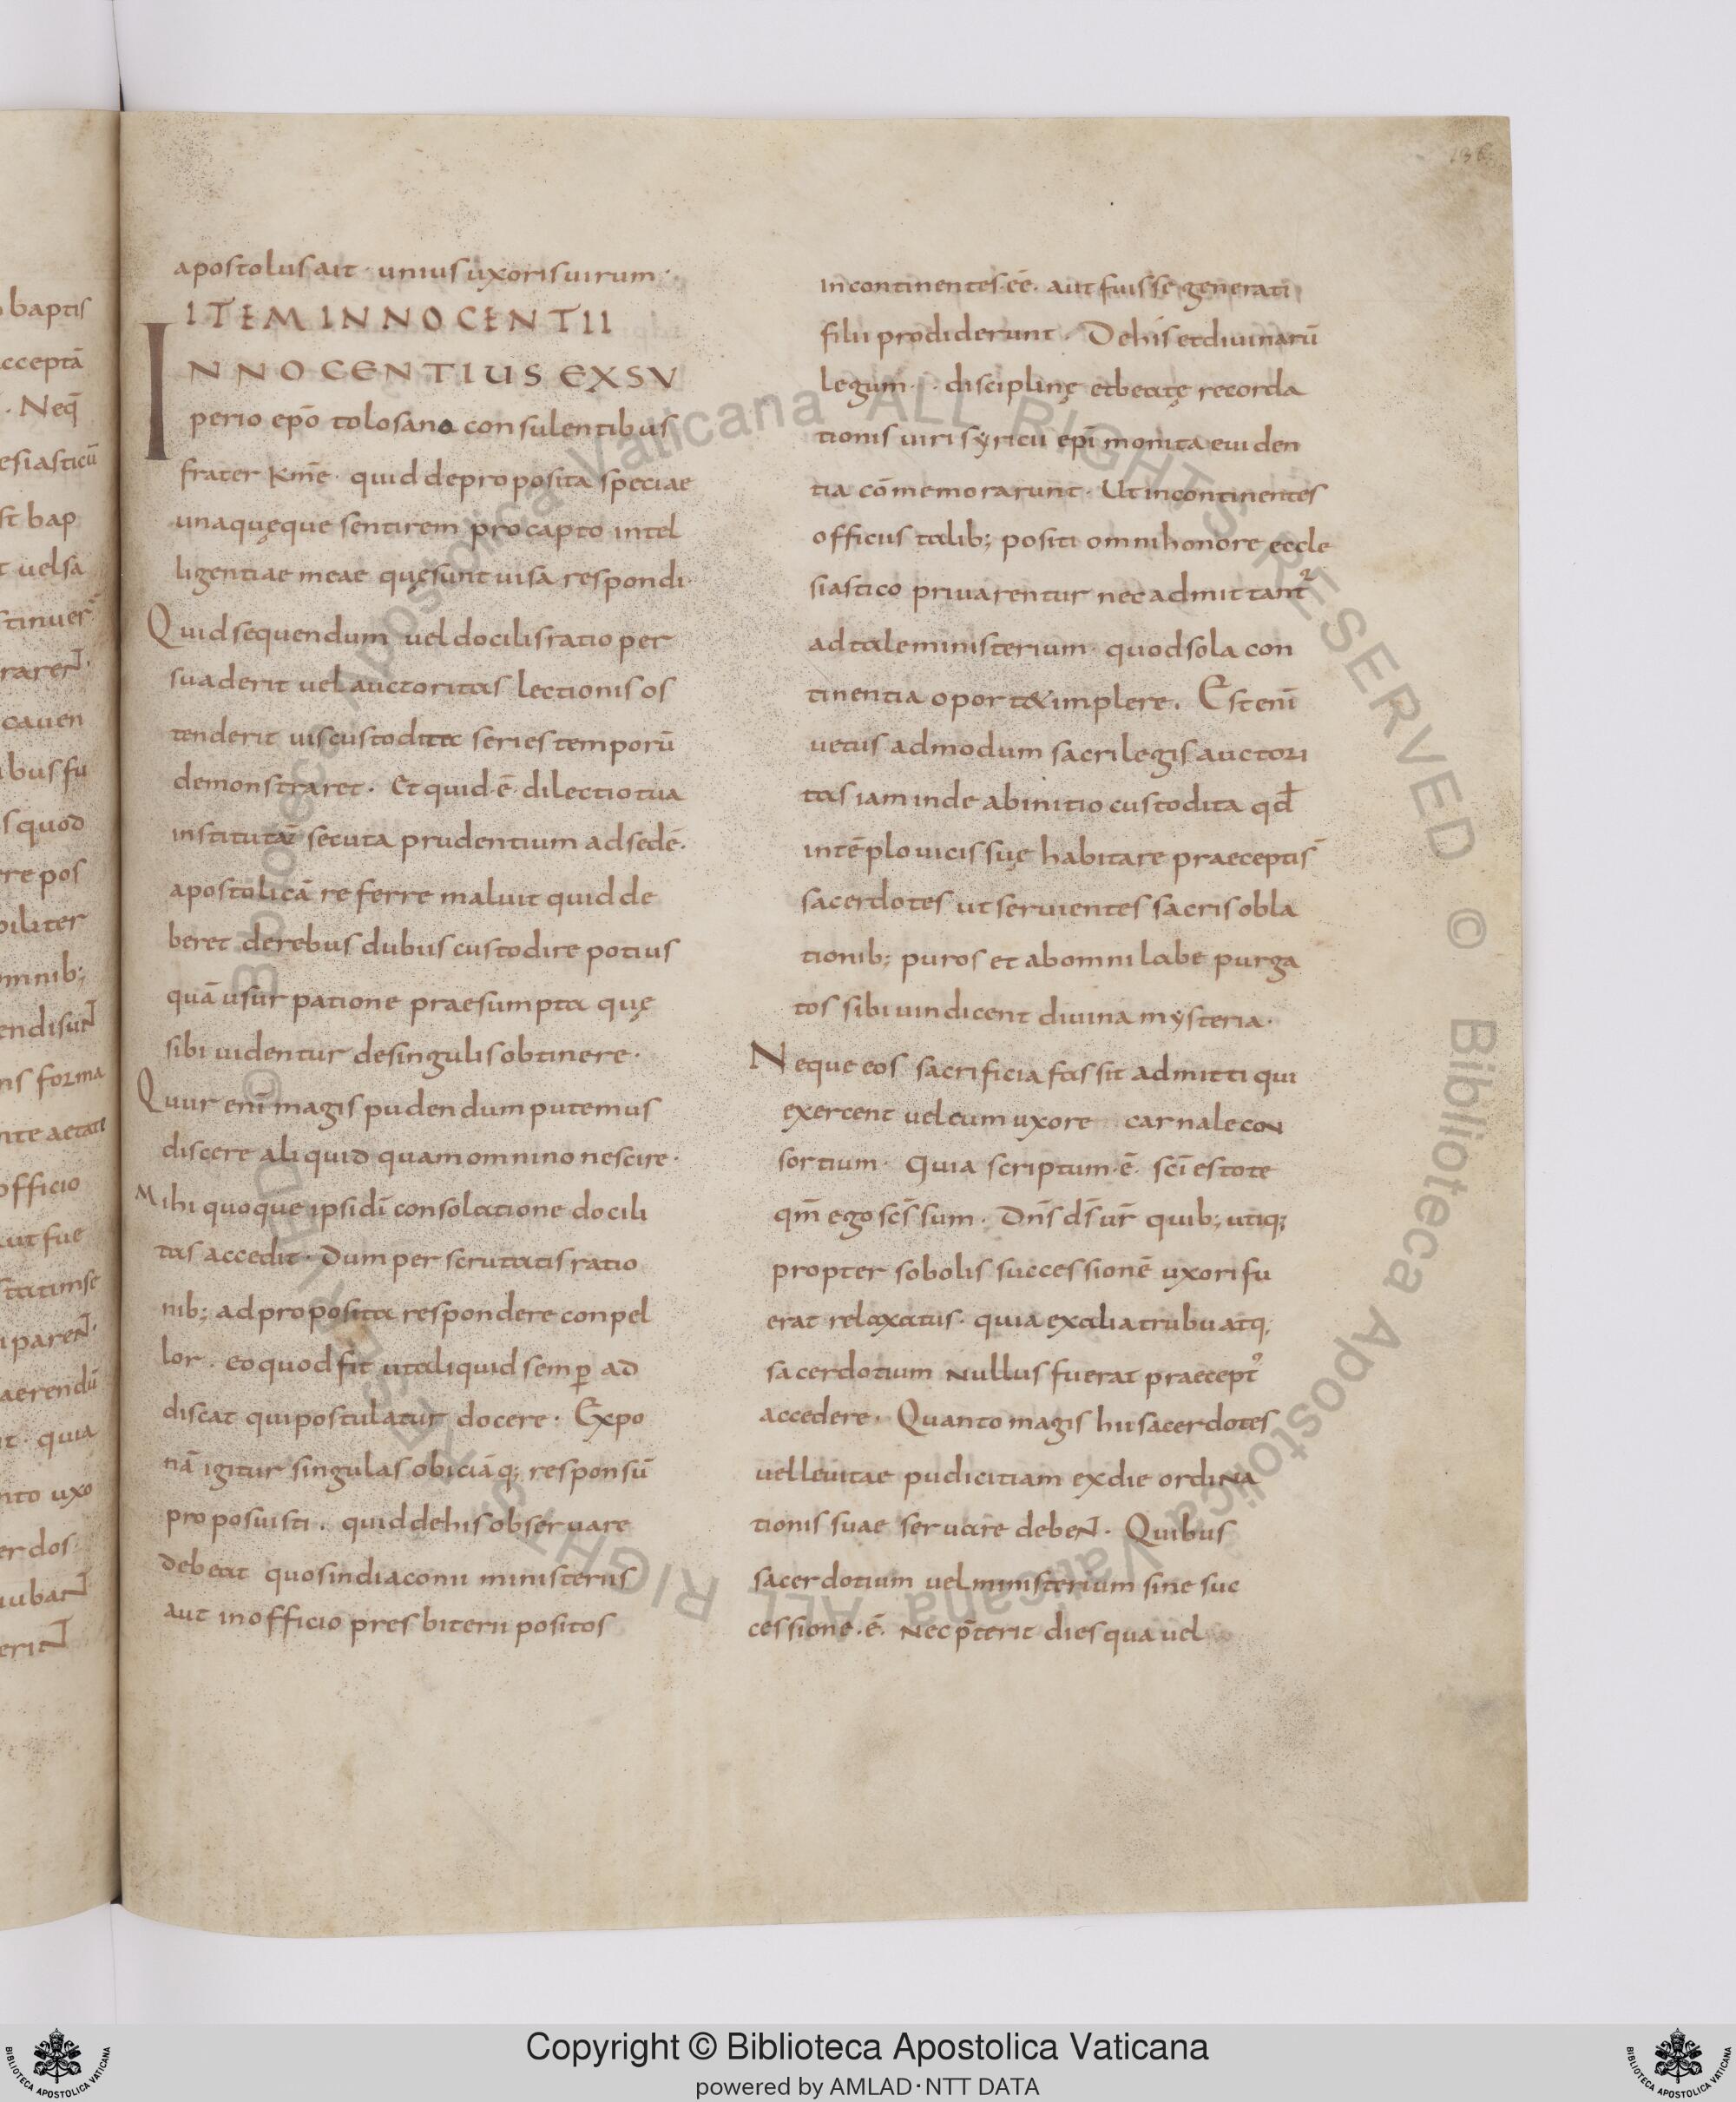 o baptis
cceptā
. Neq̄
esiasticū
st bap
t uel sa
stinuer
raren̄t.
cauen
ibus fu
s quod
ere pos
biliter
omnib;
endi sun̄t
ns forma
nte aetate
officio
aut fue
statim se
paren̄t.
aerendū
t. quia
nto uxo
erdos.
iuban̄t
erin̄t
136
apostolus ait. unius uxoris uirum.
ITEM INNOCENTII
INNOCENTIUS EXSV
perio ep̄o tolosano consulentibus
frater km̄e. quid de proposita speciae
unaquęque sentirem pro capto intel
ligentiae meae quę sunt uisa respondi.
Quid sequendum uel docilis ratio per
suaderit uel auctoritas lectionis os
tenderit uis custoditae series temporū
demonstraret. Et quid ē. dilectio tua
institutā secuta prudentium ad sedē.
apostolicā referre maluit quid de
beret de rebus dubiis custodire potius
quā usurpatione praesumpta quę
sibi uidentur de singulis obtinere.
Quur enī magis pudendum putemus
discere aliquid quam omnino nescire.
Mihi quoque ipsi dī consolatione docili
tas accedit. Dum perscrutatis ratio
nib; ad proposita respondere conpel
lor. eo quod fit ut aliquid semꝑ ad
discat qui postulatur docere. Expo
nā igitur singulas obiciāq; responsū
proposuisti. quid de his obseruare
debeat quos in diaconii ministeriis
aut in officio presbiterii positos
incontinentes ēē. aut fuisse generati
filii prodiderunt. De his et diuinarū
legum. disciplinę et beatę recorda
tionis uiri syricii epī monita euiden
tia cōmemorarunt. Ut incontinentes
officiis talib; positi omni honore eccle
siastico priuarentur nec admittant᷑
ad tale ministerium. quod sola con
tinentia oportet implere. Est enī
uetus admodum sacri legis auctori
tas iam inde ab initio custodita qd̄
in tēplo uicis suę habitare praeceptis̄
sacerdotes ut seruientes sacris obla
tionib; puros et ab omni labe purga
tos sibi uindicent diuina mysteria.
Neque eos sacrificia fas sit admitti qui
exercent uel cum uxore carnale con
sortium. Quia scriptum ē. scī estote
qm̄ ego scs̄ sum. Dn̄s ds̄ ur̄ quib; utiq;
propter sobolis successionē uxori fu
erat relaxatus. quia ex alia tribu atq;
sacerdotium nullus fuerat praecept᷒
accedere. Quanto magis hii sacerdotes
uel leuitae pudicitiam ex die ordina
tionis suae seruare deben̄t. Quibus
sacerdotium uel ministerium sine suc
cessione ē. nec p̄terit dies qua uel
© Biblioteca Apostolica Vaticana ALL RIGHTS RESERVED © Biblioteca Apostolica Vaticana ALL RIGHTS RESERVED
Copyright © Biblioteca Apostolica Vaticana
powered by AMLAD·NTT DATA
BIBLIOTECA APOSTOLICA VATICANA
BIBLIOTECA APOSTOLICA VATICANA